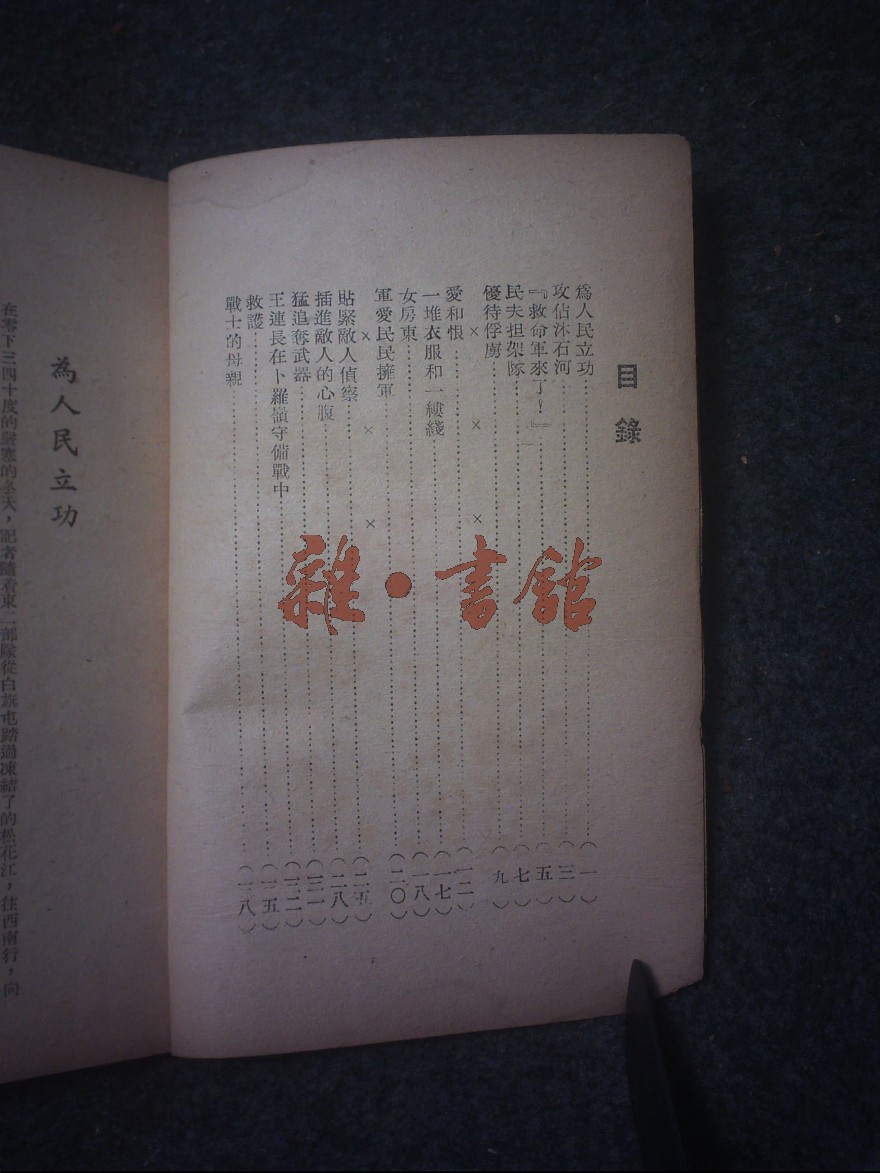 目錄
爲人民立功……(一)
攻佔沐石河……(三)
『救命軍來了！』……(五)
民夫担架隊……(七)
優待俘虜……(九)
× × ×
愛和恨……(一二)
一堆衣服和一縷綫……(一七)
女房東……(一八)
軍愛民民擁軍……(二〇)
× × ×
貼緊敵人偵察……(二五)
插進敵人的心腹……(二八)
猛追奪武器……(三一)
王連長在卜羅嶺守備戰中……(三二)
救護……
戰士的母親……
為人民立功
在零下三四十度的嚴寒的冬天，記者隨着東一部隊從白旗屯踏過凍結了的松花江，往西南行，向
雜·書館